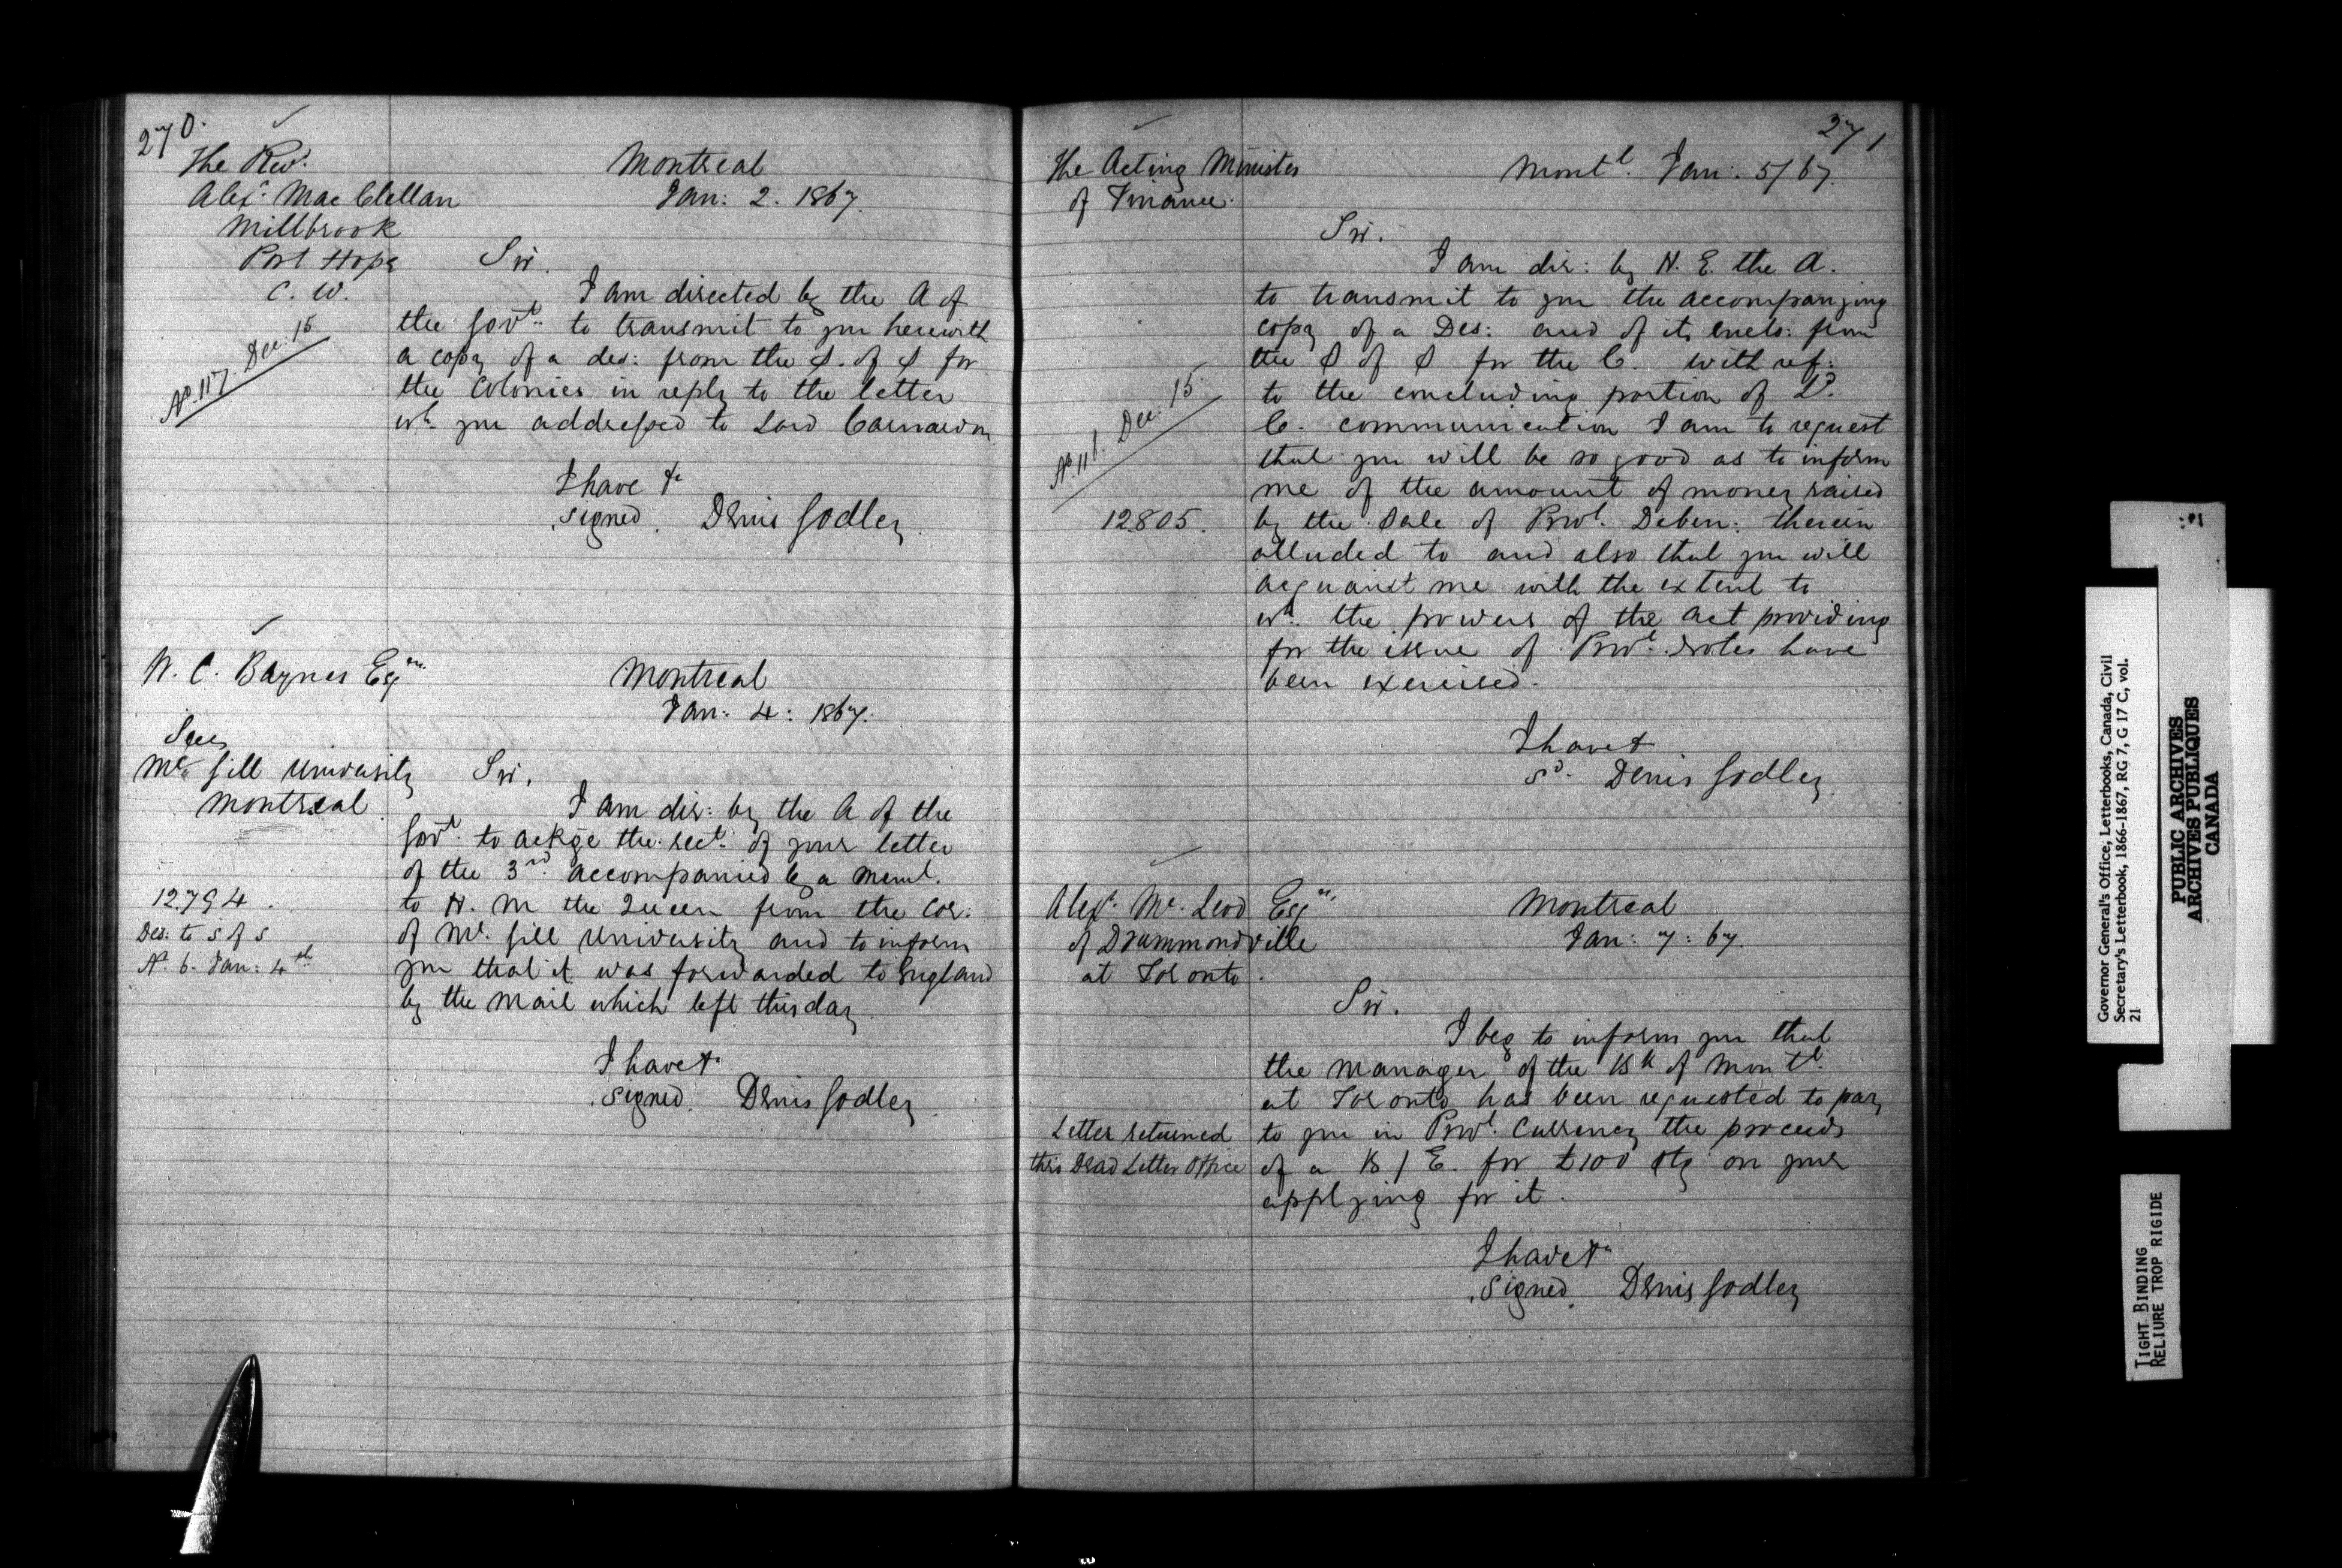 270.
The Rev.
Alexr. MacClellan
Millbrook
Port Hope
C. W.
No. 117. Dec. 15
Montreal
Jan: 2. 1867.
Sir.
I am directed by the A of
the Govt. to transmit to you herewith
a copy of a des: from the S. of S for
the Colonies in reply to the letter
wh. you addressed to Lord Carnarvon
I have &c
signed. Denis Godley.
W. C. Baynes Esqre.
Secy
McGill University
Montreal
12.794.
Des: to S of S
No. 6. Jan: 4th
Montreal
Jan: 4: 1867.
Sir,
I am dir: by the A of the
Govt. to ackge the rect. of your letter
of the 3rd. accompanied by a meml.
to H. M the Queen from the Cor:
of McGill University and to inform
you that it was forwarded to England
by the mail which left this day.
I have &
signed. Denis Godley.
271
The Acting Minister
of Finance.
No. 118. Dec. 15
12805.
Montl. Jan: 5/67.
Sir.
I am dir: by H. E. the A.
to transmit to you the accompanying
copy of a Des: and of its encls: from
the S of S for the C. with ref:
to the concluding portion of Ld.
C. communication I am to request
that you will be so good as to inform
me of the amount of money raised
by the Sale of Provl. Deben: therein
alluded to and also that you will
acquaint me with the extent to
wh. the powers of the Act providing
for the issue of Provl. Notes have
been exercised.
I have &
sd. Denis Godley.
Alexr. McLeod Esqre.
of Drummondville
at Toronto.
Letter returned
thro Dead Letter Office
Montreal
Jan: 7: 67.
Sir.
I beg to inform you that
the Manager of the Bk of Montl.
at Toronto has been requested to pay
to you in Provl. Currency the proceeds
of a B/E. for £100 stg on your
applying for it.
I have &
signed. Denis Godley
Governor General's Office; Letterbooks, Canada, Civil
Secretary's Letterbook, 1866-1867, RG 7, G 17 C, vol.
21
PUBLIC ARCHIVES
ARCHIVES PUBLIQUES
CANADA
TIGHT BINDING
RELIURE TROP RIGIDE